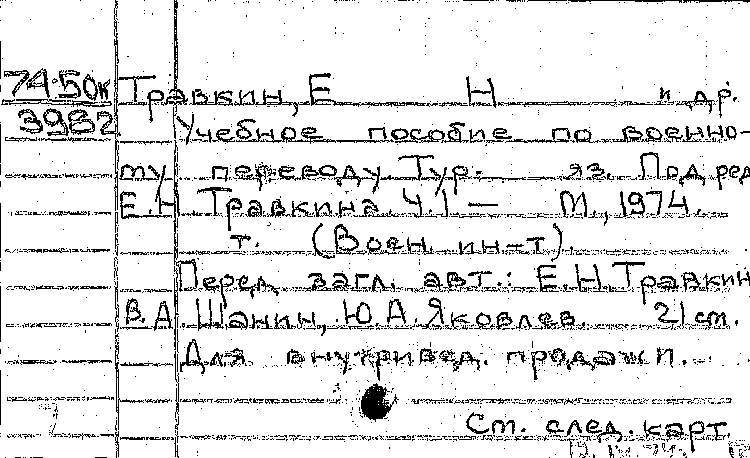 74-50к Травкин, Е Н и др.
3982 Учебное пособие по военно-
му переводу. Тур. яз. Под ред
Е.Н. Травкина. Ч.1 — М., 1974.
т. (Воен. ин-т).
Перед загл. авт.: Е.Н. Травкин
В.А. Шанин, Ю.А. Яковлев. 21 см.
Для внутривед. продажи.
См. след. карт.